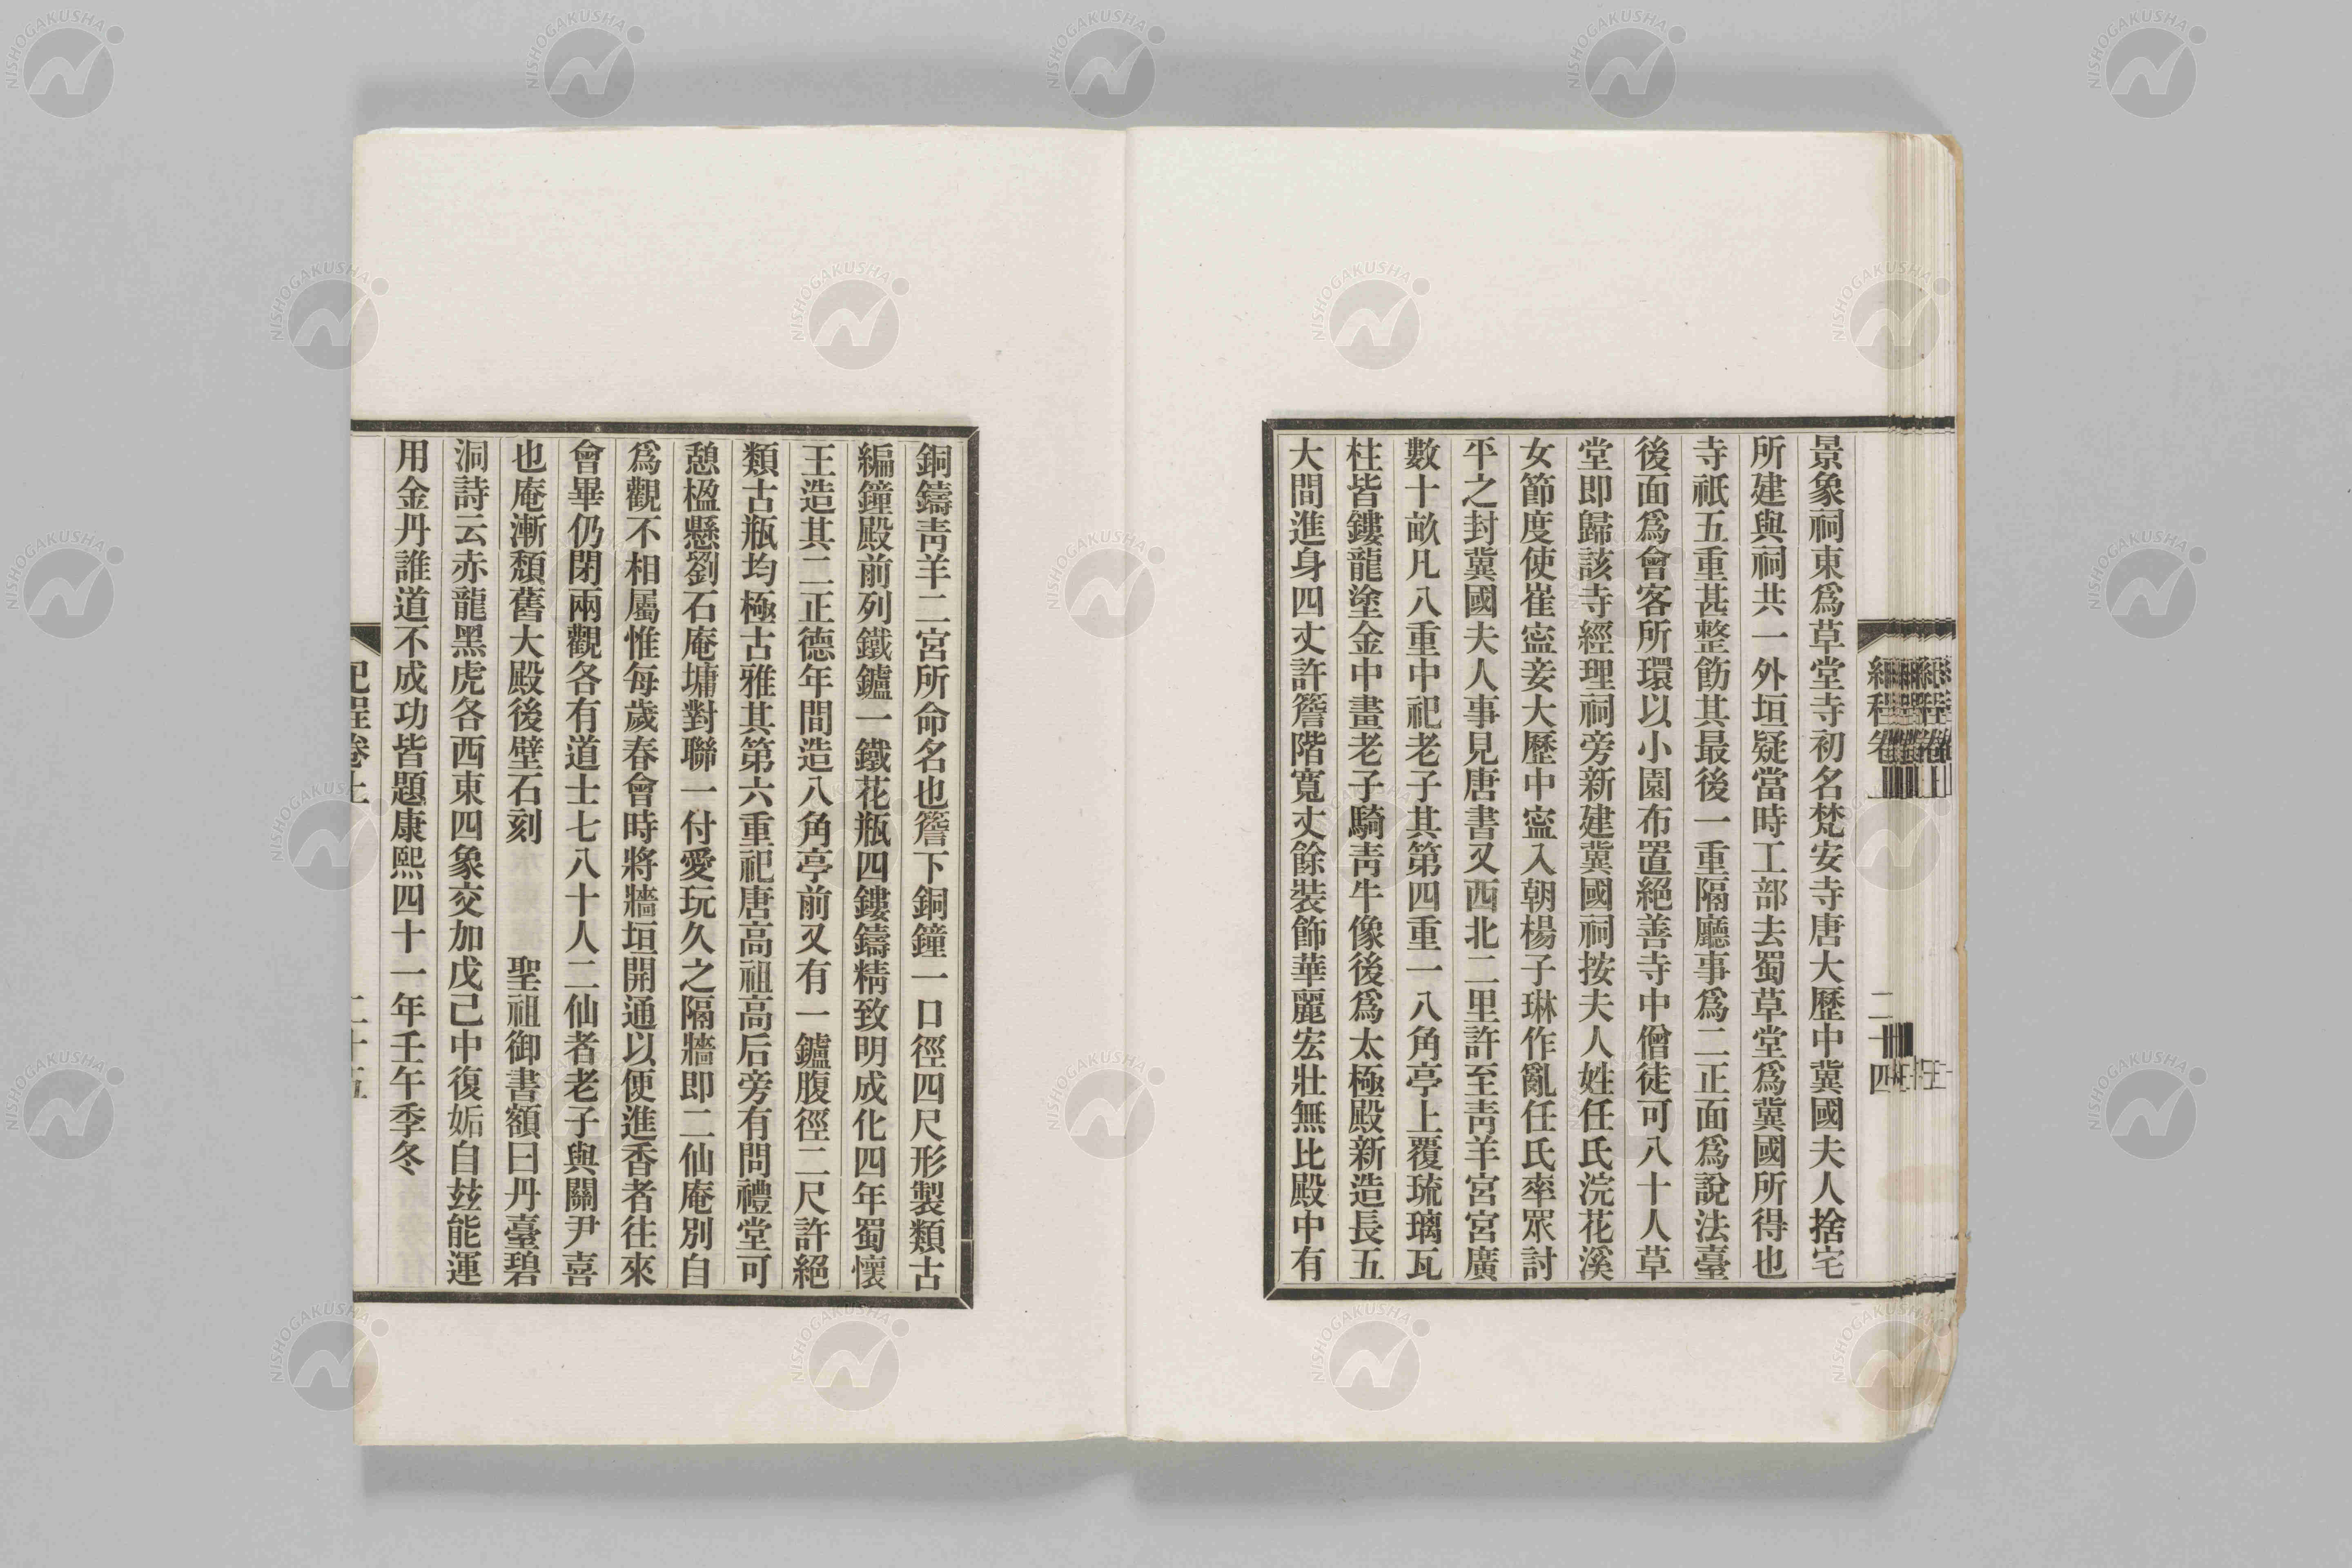 景象祠東爲草堂寺初名梵安寺唐大歷中冀國夫人捨宅
所建與祠共一外垣疑當時工部去蜀草堂爲冀國所得也
寺祇五重甚整飭其最後一重隔廳事爲二正面爲說法臺
後面爲會客所環以小園布置絕善寺中僧徒可八十人草
堂即歸該寺經理祠旁新建冀國祠按夫人姓任氏浣花溪
女節度使崔寍妾大歷中寍入朝楊子琳作亂任氏率眾討
平之封冀國夫人事見唐書又西北二里許至靑羊宮宮廣
數十畝凡八重中祀老子其第四重一八角亭上覆琉璃瓦
柱皆鏤龍塗金中畫老子騎靑牛像後爲太極殿新造長五
大間進身四丈許簷階寬丈餘裝飾華麗宏壯無比殿中有
銅鑄靑羊二宮所命名也簷下銅鐘一口徑四尺形製類古
編鐘殿前列鐵鑪一鐵花瓶四鏤鑄精致明成化四年蜀懷
王造其二正德年間造八角亭前又有一鑪腹徑二尺許絕
類古瓶均極古雅其第六重祀唐高祖高后旁有問禮堂可
憩楹懸劉石庵墉對聯一付愛玩久之隔牆即二仙庵別自
爲觀不相屬惟每歲春會時將牆垣開通以便進香者往來
會畢仍閉兩觀各有道士七八十人二仙者老子與關尹喜
也庵漸頹舊大殿後壁石刻　　聖祖御書額曰丹臺碧
洞詩云赤龍黑虎各西東四象交加戊己中復姤自玆能運
用金丹誰道不成功皆題康熙四十一年壬午季冬
紀程卷上
二十五
NISHOGAKUSHA